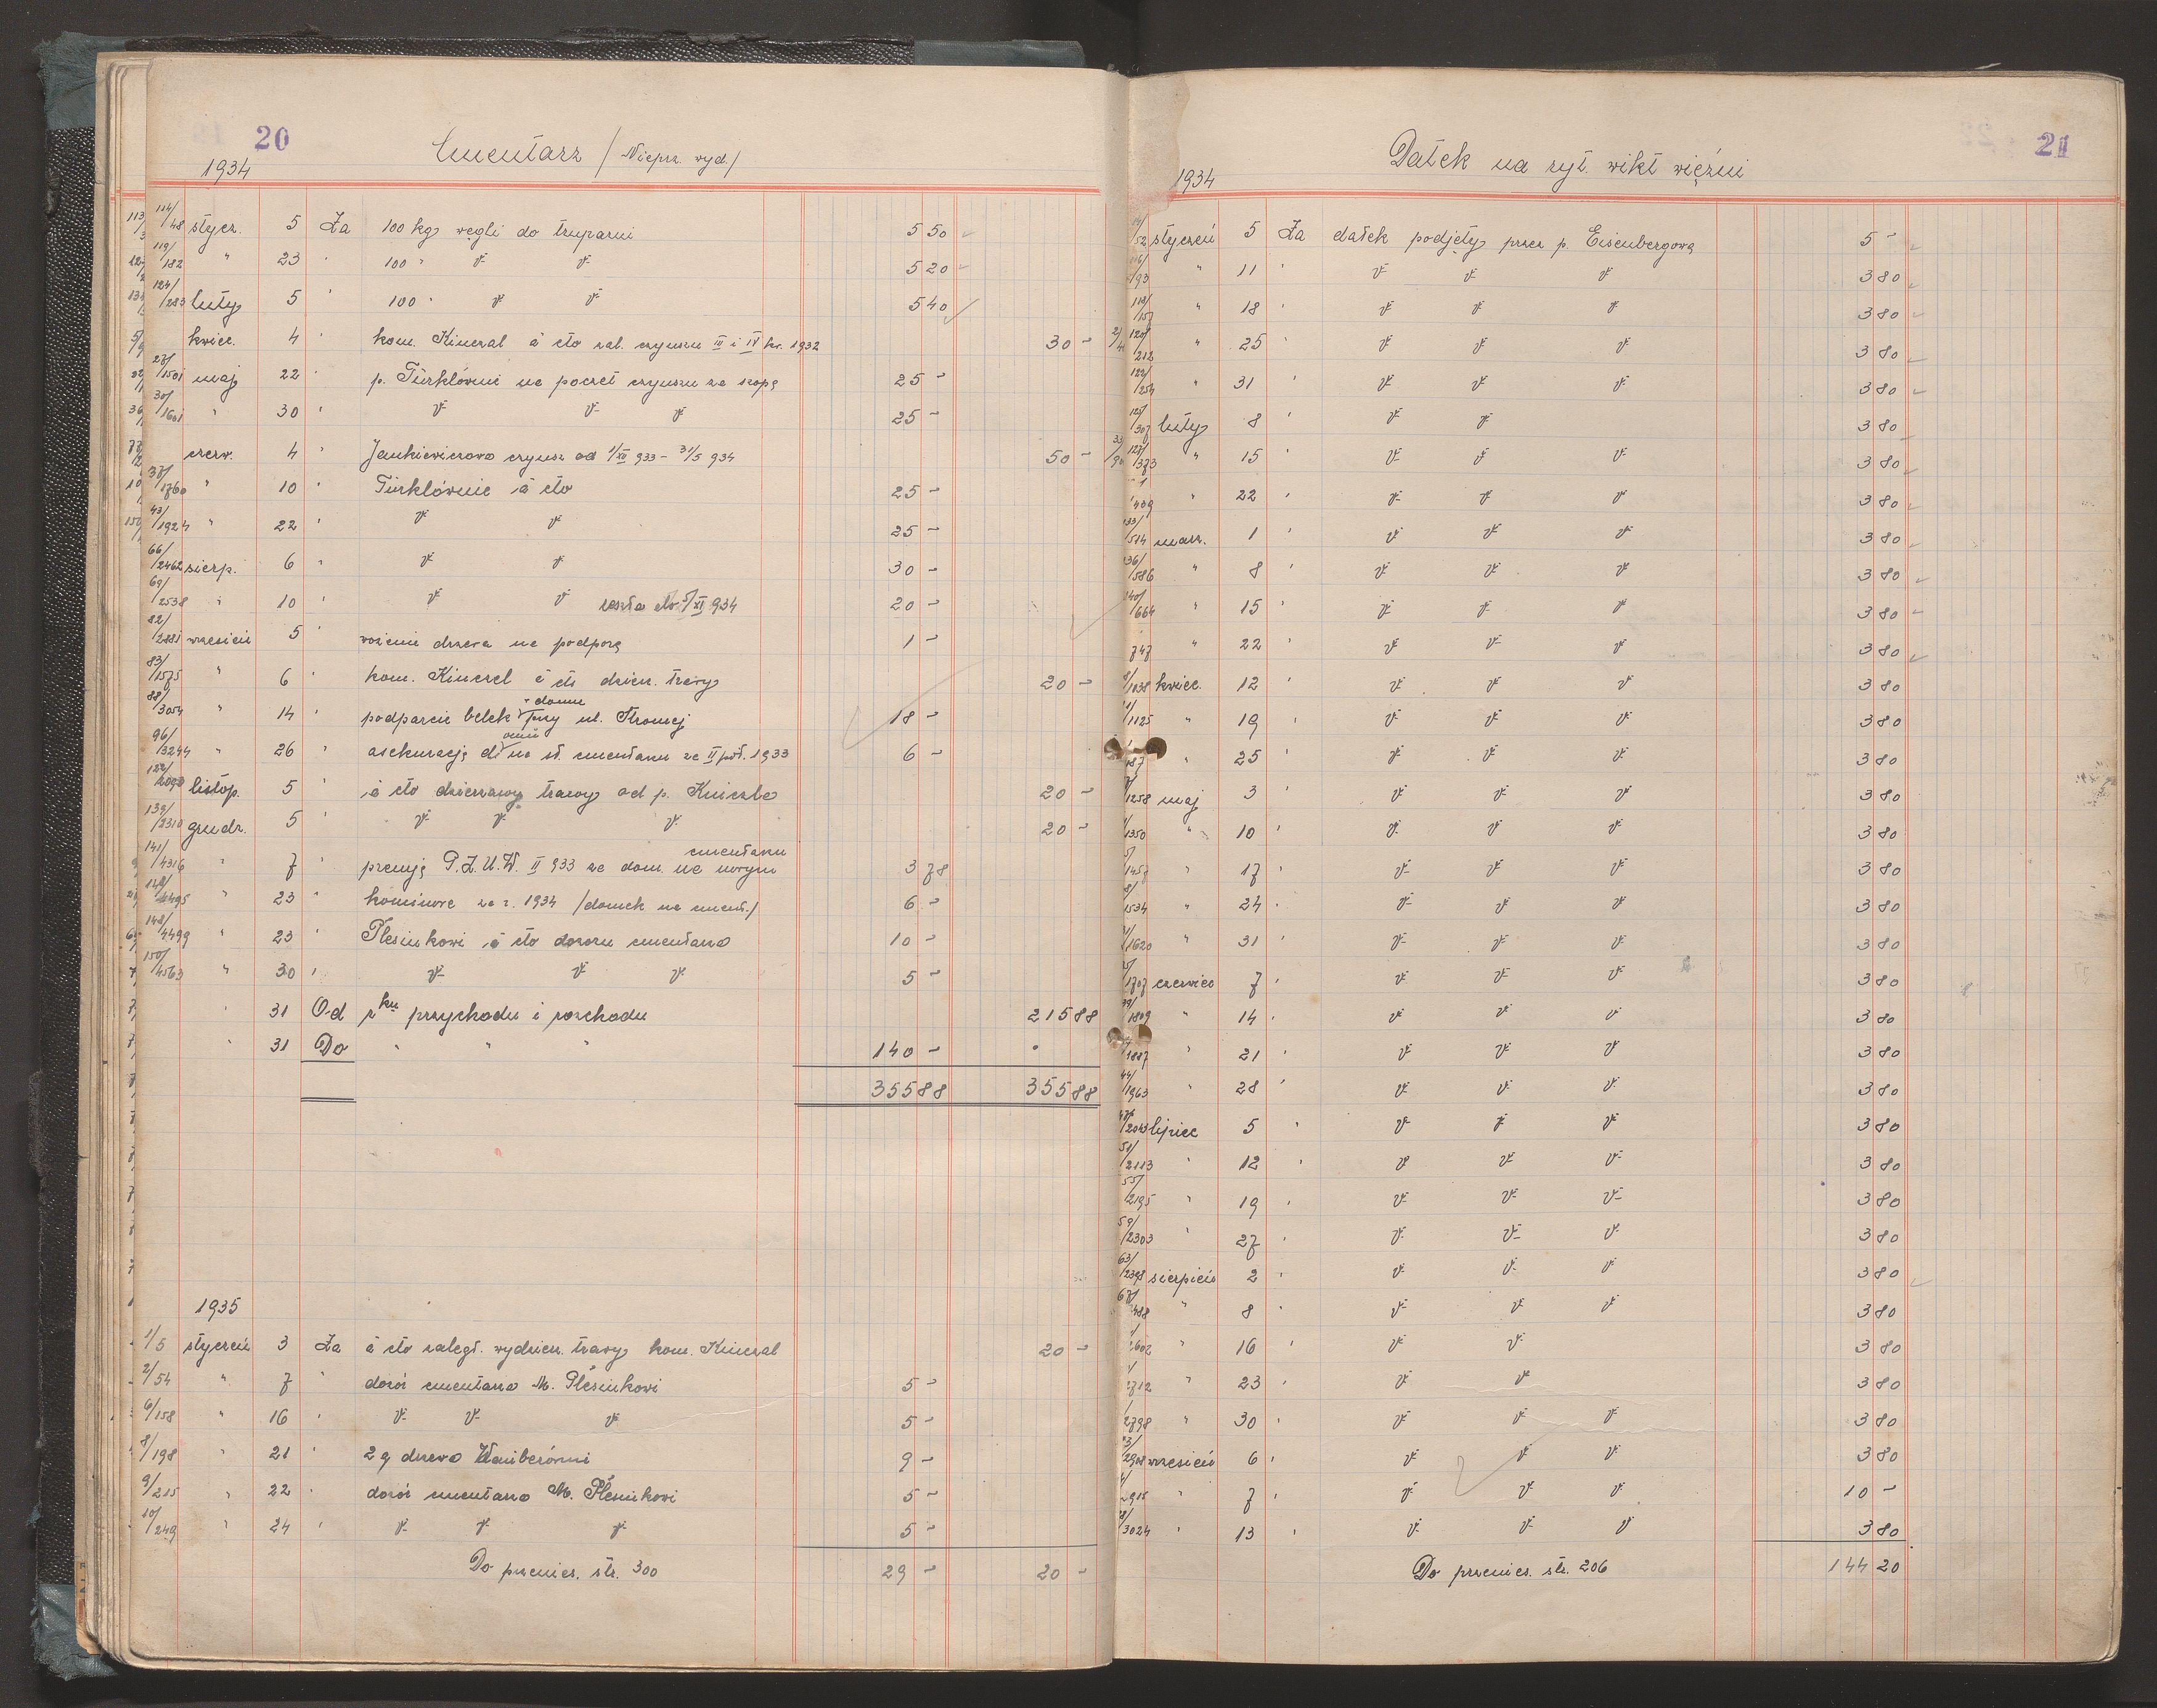 20
1934 Cmentarz / Niepsz. wyd /
114/48 stycz. 5 Za 100 kg węgli do trupiarni 5 50
119/182 " 23 " 100 " v v 5 20
124/283 luty 5 " 100 " v v 5 40
kwiec. 4 " kom. Kinczal à cto zal. czynszu III i IV kw. 1932 30 -
27/1501 maj 22 " p. Türklównie na poczet czynszu za szopę 25 -
30/1601 " 30 " v v v 25 -
czerw. 4 " Jankiewiczowa czynsz od 1/XII 933 - 31/5 934 50 -
37/1760 " 10 " Türklównie à cto 25 -
43/1924 " 22 " v v 25 -
66/2462 sierp. 6 " v v 30 -
69/2538 " 10 " v v reszta do 5/XI 934 20 -
82/2881 wrzesień 5 " wożenie drzewa na podporę 1 -
83/1575 " 6 " kom. Kinczel à cto dzierż. trawy 20 -
88/3054 " 14 " podparcie belek domu przy ul. Stromej 18 -
96/3244 " 26 " asekurację domu na st. cmentarzu za II poł. 1933 6 -
listop. 5 " à cto dzierżawy trawy od p. Kniczla 20 -
139/2310 grudz. 5 " v v v 20 -
141/4316 " 7 " premję P.Z.U.W. II 933 za dom. na nowym cmentarzu 3 78
148/4495 " 23 " kominowe za r. 1934 /domek na cment./ 6 -
148/4499 " 23 " Plesiukowi à cto dozoru cmentarza 10 -
150/4563 " 30 " v v v 5 -
" 31 Od rku przychodu i rozchodu 215 88
" 31 Do " " " 140 -
355 88 355 88
1935
1/5 styczeń 3 Za à cto zaległ. wydzierż. trawy kom. Kinczal 20 -
2/54 " 7 " dozór cmentarza M. Plesiukowi 5 -
6/158 " 16 " v v v 5 -
8/198 " 21 " 2 q drzewa Wainberónni 9 -
9/215 " 22 " dozór cmentarza M. Plesiukowi 5 -
10/249 " 24 " v v v 5 -
Do przenies. str. 300 29 - 20 -
21
1934 Datek na ryt. wikt więźni
/52 styczeń 5 Za datek podjęty przez p. Eisenbergową 5 -
/93 " 11 " v v v 3 80
/157 " 18 " v v v 3 80
120/212 " 25 " v v v 3 80
122/254 " 31 " v v v 3 80
/307 luty 8 " v v 3 80
127/373 " 15 " v v v 3 80
/439 " 22 " v v v 3 80
133/514 marz. 1 " v v v 3 80
136/586 " 8 " v v v 3 80
140/664 " 15 " v v v 3 80
747 " 22 " v v v 3 80
/1038 kwiec. 12 " v v v 3 80
/1125 " 19 " v v v 3 80
" 25 " v v v 3 80
/1258 maj 3 " v v v 3 80
/1350 " 10 " v v v 3 80
/1457 " 17 " v v v 3 80
/1534 " 24 " v v v 3 80
/1620 " 31 " v v v 3 80
/1707 czerwiec 7 " v v v 3 80
/1809 " 14 " v v v 3 80
/1887 " 21 " v v v 3 80
44/1963 " 28 " v v v 3 80
47/2043 lipiec 5 " v v v 3 80
51/2113 " 12 " v v v 3 80
55/2195 " 19 " v v v 3 80
59/2303 " 27 " v v v 3 80
63/2398 sierpień 2 " v v v 3 80
67/2488 " 8 " v v v 3 80
2602 " 16 " v v 3 80
2712 " 23 " v v 3 80
2798 " 30 " v v v 3 80
/2908 wrzesień 6 " v v v 3 80
2915 " 7 " v v v 10 -
/3024 " 13 " v v v 3 80
Do przenies. str. 206 144 20